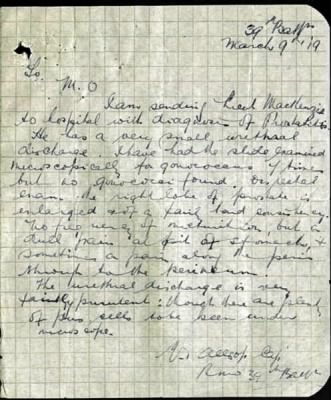 39th Battn
March 9th /19
To
M.O
I am sending Lieut MacKenzie
to hospital with diagnosis of Prostatitis
He has a very small urethral
discharge I have had the slide examined
microscopically for gonococcus times
but no gonococci found. On rectal
exam. the right lobe of prostate is
enlarged & of a fairly hard consistency.
No frequency of micturition, but a
dull pain at pit of stomach, &
sometimes a pain along the penis
through to the perineum.
The urethral discharge is very
faintly purulent: though there are plenty
of pus cells to be seen under
microscope.
Allsop Capt
RMO 39th Battn